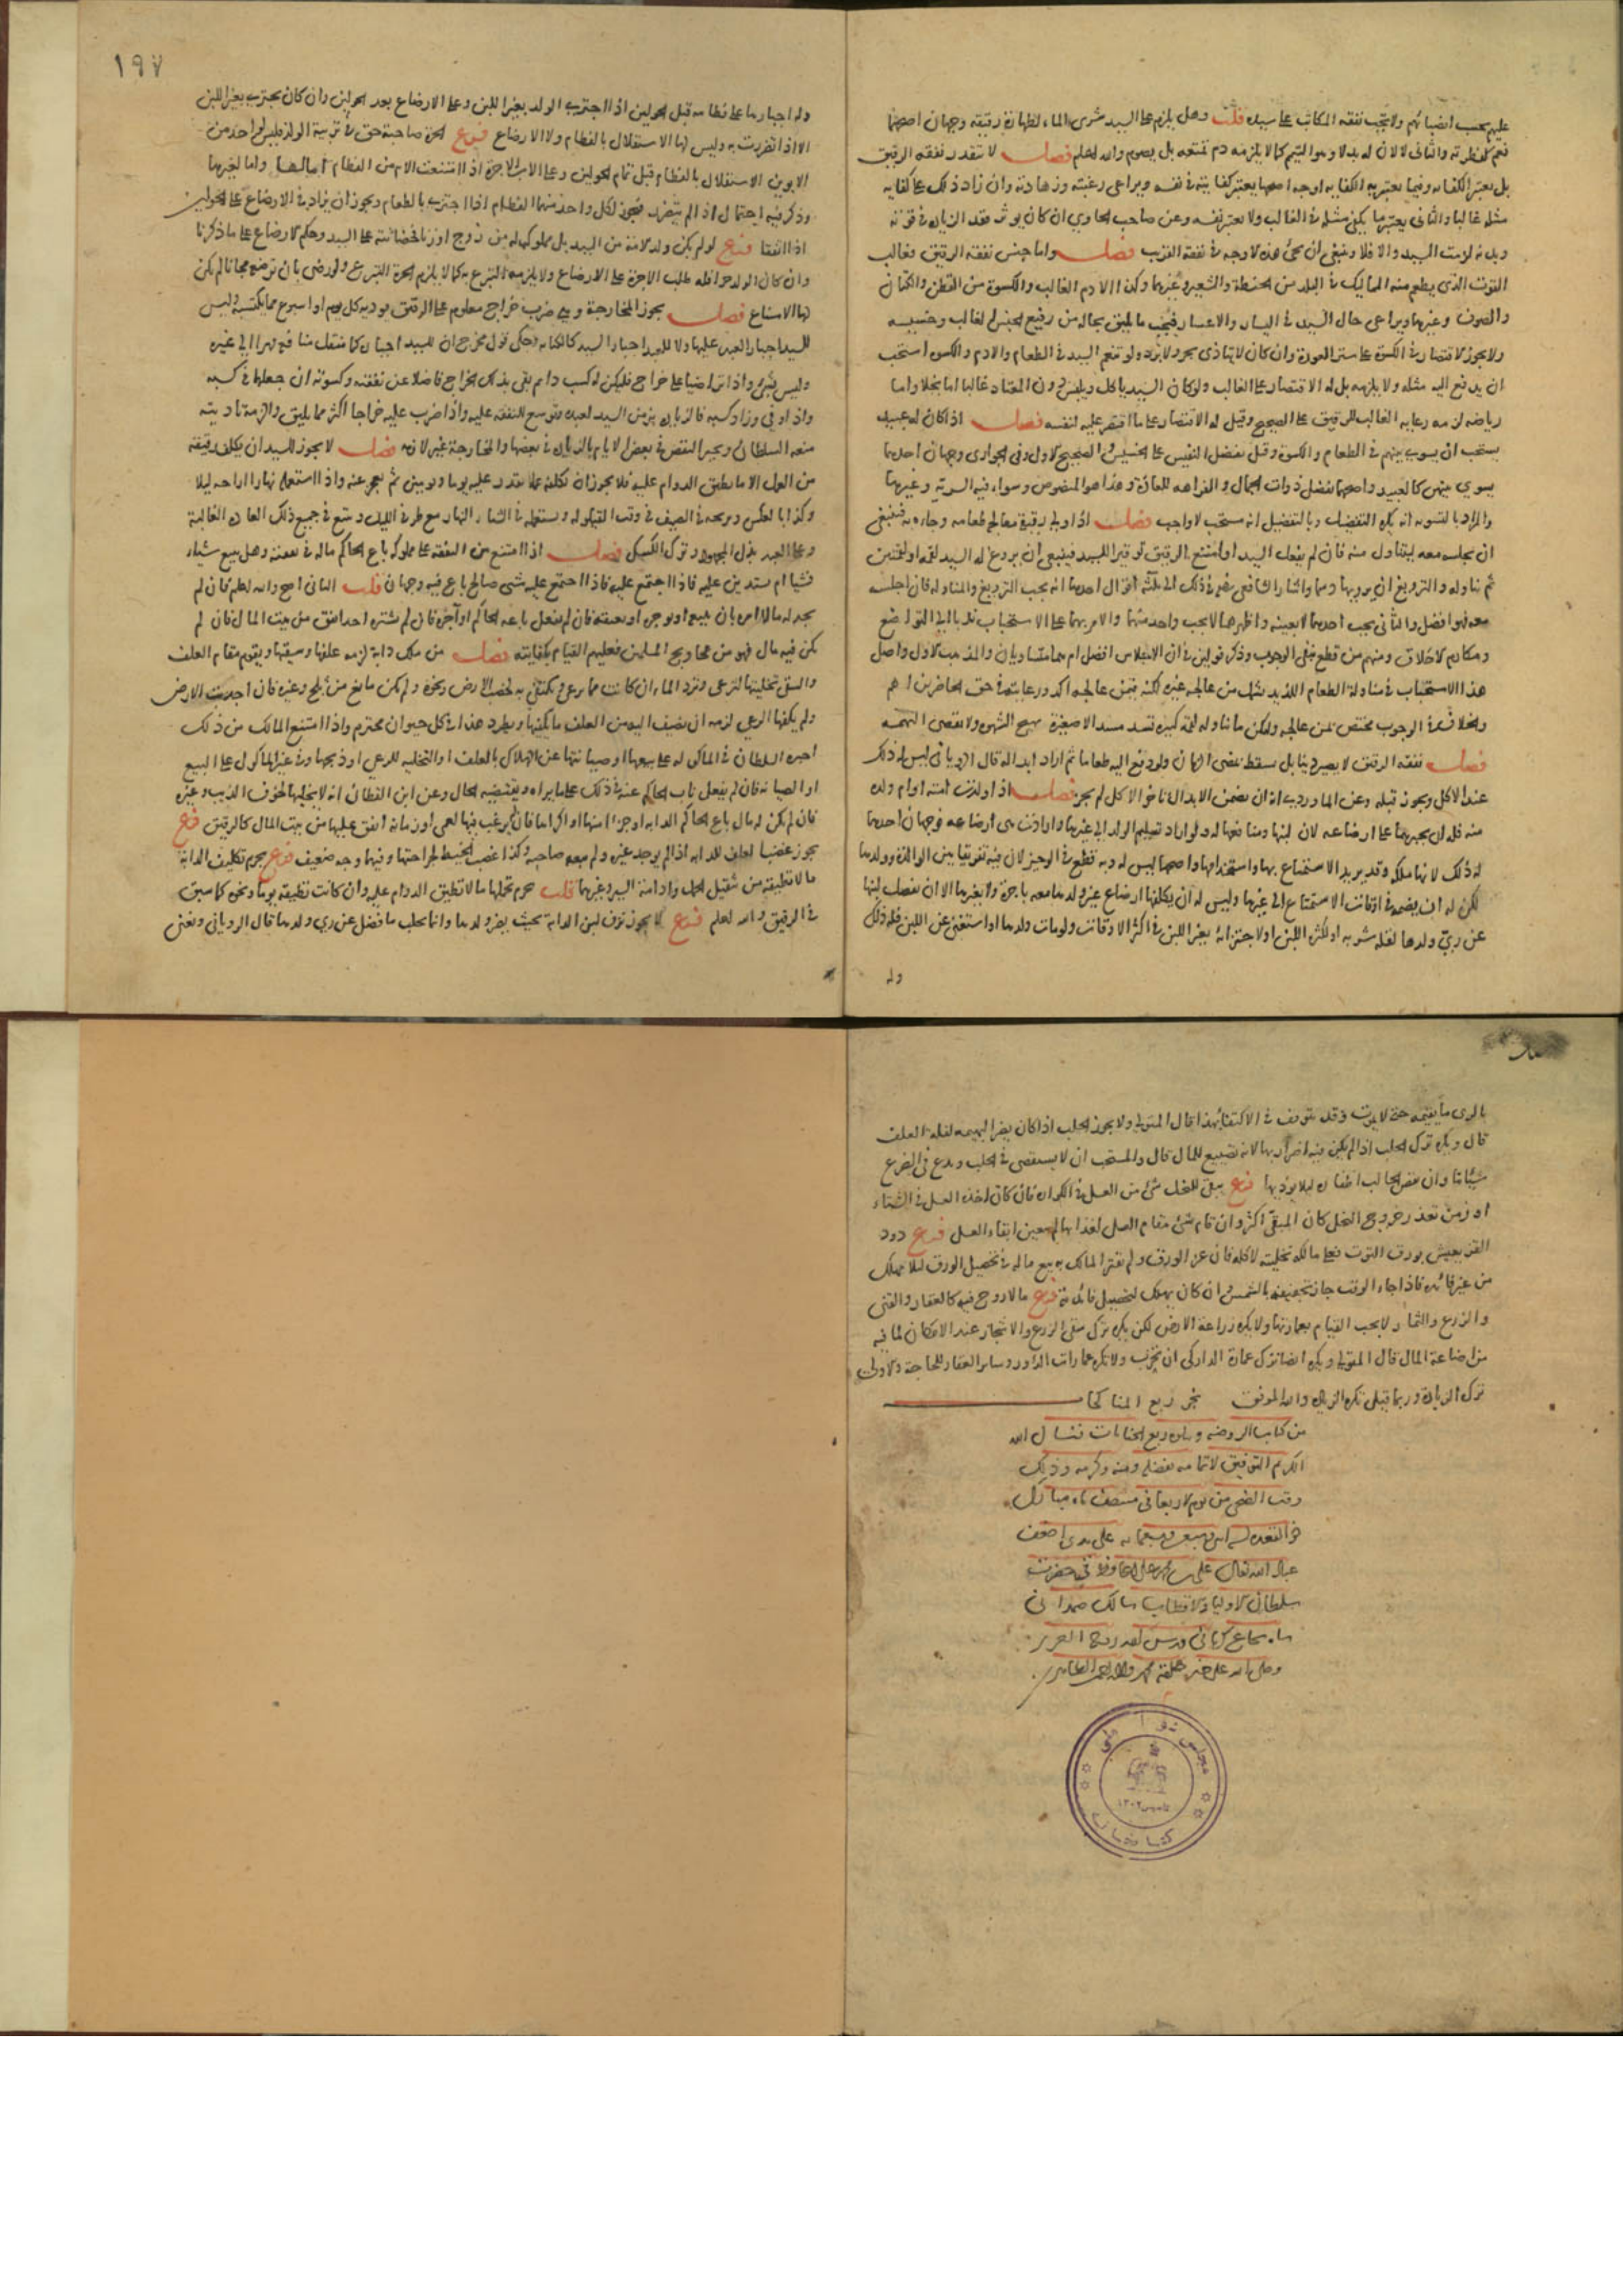 عليهم بحسب انصبائهم ولا تجب نفقة المكاتب على سيده قلت وهل يلزم على السيد شرى الماء لطهارة رقيقه وجهان اصحهما
نعم كفطرته والثاني لا لان له بدلا وهو التيمم كما لا يلزمه دم تمتعه بل يصوم والله اعلم فصل لا تتقدر نفقة الرقيق
بل يعتبر الكفاية وفيما يعتبر به الكفاية اوجه اصحها يعتبر كفايته في نفسه ويراعى رغبته وزهادته وان زاد ذلك على كفاية
مثله غالبا والثاني يعتبر ما يكفي مثله في الغالب ولا يعتبر نفسه وعن صاحب الحاوي ان كان يؤثر فقد الزيادة في قوته
وبدنه لزمت السيد والا فلا وينبغي ان يجئ هذه الاوجه في نفقة القريب فصل واما جنس نفقة الرقيق فغالب
القوت الذي يطعم منه المماليك في البلد من الحنطة والشعير وغيرهما وكذا الادم الغالب والكسوة من القطن والكتان
والصوف وغيرها ويراعى حال السيد في اليسار والاعسار فيجب ما يليق بحاله من رفيع الجنس الغالب وخسيسه
ولا يجوز الاقتصار في الكسوة على ستر العورة وان كان لا يتاذى بحر ولا برد ولو تنعم السيد في الطعام والادم والكسوة استحب
ان يدفع اليه مثله ولا يلزمه بل له الاقتصار على الغالب ولو كان السيد ياكل ويلبس دون المعتاد غالبا اما بخلا واما
رياضة لزمه رعاية الغالب للرقيق على الصحيح وقيل له الاقتصار على ما اقتصر عليه لنفسه فصل اذا كان له عبيد
يستحب ان يسوي بينهم في الطعام والكسوة وقيل يفضل النفيس على الخسيس والصحيح الاول وفي الجواري وجهان احدهما
يسوي بينهن كالعبيد واصحهما تفضل ذوات الجمال والفراهة للعادة وهذا هو المنصوص وسواء فيه السرية وغيرها
والمراد بالتسوية انه يكره التفضيل وبالتفضيل انه مستحب لا واجب فصل اذا ولي رقيقه معالجة طعامه وجاءه به فينبغي
ان يجلسه معه ليتناول منه فان لم يفعل السيد او امتنع الرقيق توقيرا للسيد فينبغي ان يروغ له السيد لقمة او لقمتين
ثم يناوله والترويغ ان يرويها دسما واشار الشافعي رضي في ذلك الى ثلثة اقوال احدها انه يجب الترويغ والمناولة فان اجلسه
معه فهو افضل والثاني يجب احدهما لا بعينه واظهرها لا يجب واحد منهما والامر بهما على الاستحباب ندبا الى التواضع
ومكارم الاخلاق ومنهم من قطع بنفي الوجوب وذكر قولين في ان الاجلاس افضل ام هما متساويان والمذهب الاول واصل
هذا الاستحباب في مناولة الطعام اللذيذ يشمل من عالجه وغيره لكنه فيمن عالجه اكد ورعايته في حق الحاضرين اهم
والخلاف في الوجوب مختص بمن عالجه وليكن ما يناوله لقمة كبيرة تسد مسدا لا صغيرة تهيج الشهوة ولا تقضي النهمة
فصل نفقة الرقيق لا تصير دينا بل تسقط بمضي الزمان ولو دفع اليه طعاما ثم اراد ابداله قال الروياني ليس له ذلك
عند الاكل ويجوز قبله وعن الماوردي انه ان تضمن الابدال تاخير الاكل لم يجز فصل اذا ولدت امته او ام ولده
منه فله ان يجبرها على ارضاعه لان لبنها ومنافعها له ولو اراد تسليم الولد الى غيرها وارادت هي ارضاعه فوجهان احدهما
له ذلك لانها ملكه وقد يريد الاستمتاع بها واستخدامها واصحهما ليس له وبه قطع في الوجيز لان فيه تفريقا بين الوالدة وولدها
لكن له ان يضمه في اوقات الاستمتاع الى غيرها وليس له ان يكلفها ارضاع غير ولدها معه باجرة ولا بغيرها الا ان يفضل لبنها
عن ري ولدها لقلة شربه او لكثرة اللبن او لاجتزائه بغير اللبن في اكثر الاوقات ولو مات ولدها او استغنى عن اللبن فله ذلك
وله
١٩٧
وله اجبارها على فطامه قبل الحولين اذا اجتزى الولد بغير اللبن وعلى الارضاع بعد الحولين وان كان يجتزي بغير اللبن
الا اذا تضررت به وليس لها الاستقلال بالفطام ولا الارضاع فرع الحرة صاحبة حق في تربية الولد فليس لواحد من
الابوين الاستقلال بالفطام قبل تمام الحولين وعلى الاب الاجرة اذا امتنعت الام من الفطام اما لها واما لغيرها
وذكر فيه احتمال اذا لم يتضرر فيجوز لكل واحد منهما الفطام اذا اجتزى بالطعام ويجوز ان يزاد في الارضاع على الحولين
اذا اتفقا فرع لو لم يكن ولد الامة من السيد بل مملوكا له من زوج او زنا فحضانته على السيد وحكم الارضاع على ما ذكرنا
وان كان الولد حرا فله طلب الاجرة على الارضاع ولا يلزمه التبرع به كما لا يلزم الحرة التبرع ولو رضي بان ترضعه مجانا لم يكن
لها الامتناع فصل يجوز المخارجة وهي ضرب خراج معلوم على الرقيق يوديه كل يوم او اسبوع مما يكتسبه وليس
للسيد اجبار العبد عليها ولا للعبد اجبار السيد كالكتابة وحكي قول مخرج ان للسيد اجباره كما ينقل منافعه قهرا الى غيره
وليس بشئ واذا تراضيا على خراج فليكن له كسب دائم يفي بذلك الخراج فاضلا عن نفقته وكسوته ان جعلها في كسبه
واذا وفى وزاد كسبه فالزيادة بر من السيد لعبده وتوسيع للنفقة عليه واذا ضرب عليه خراجا اكثر مما يليق والزمه تاديته
منعه السلطان ويجبر النقص في بعض الايام بالزيادة في بعضها والمخارجة غير لازمة فصل لا يجوز للسيد ان يكلف رقيقه
من العمل الا ما يطيق الدوام عليه فلا يجوز ان يكلفه عملا يقدر عليه يوما ويومين ثم يعجز عنه واذا استعمله نهارا اراحه ليلا
وكذا بالعكس ويريحه في الصيف في وقت القيلولة ويستعمله في الشتاء النهار مع طرفي الليل ويتبع في جميع ذلك العادة الغالبة
وعلى العبد بذل المجهود وترك الكسل فصل اذا امتنع من النفقة على مملوكه باع الحاكم ماله في نفقته وهل يبيع شيئا
فشيئا ام يستدين عليه فاذا اجتمع عليه شئ صالح باع فيه وجهان قلت الثاني اصح والله اعلم فان لم
يجد له مالا امره بان يبيعه او يوجره او يعتقه فان لم يفعل باعه الحاكم او آجره فان لم يشتره احد انفق من بيت المال فان لم
يكن فيه مال فهو من محاويج المسلمين فعليهم القيام بكفايته فصل من ملك دابة لزمه علفها وسقيها ويقوم مقام العلف
والسقي تخليتها لترعى وترد الماء ان كانت مما يرعى ويكتفي به لخصب الارض ونحوه ولم يكن مانع من ثلج وغيره فان اجدبت الارض
ولم يكفها الرعي لزمه ان يضيف اليه من العلف ما يكفيها ويطرد هذا في كل حيوان محترم واذا امتنع المالك من ذلك
اجبره السلطان في الماكولة على بيعها او صيانتها عن الهلاك بالعلف او التخلية للرعي او ذبحها وفي غير الماكول على البيع
او الصيانة فان لم يفعل ناب الحاكم عنه في ذلك على ما يراه ويقتضيه الحال وعن ابن القطان انه لا يخليها لخوف الذيب وغيره
فان لم يكن له مال باع الحاكم الدابة او جزءا منها او اكراها فان لم يرغب فيها لعمى او زمانة انفق عليها من بيت المال كالرقيق فرع
يجوز غصب العلف للدابة اذا لم يوجد غيره ولم يبعه صاحبه وكذا غصب الخيط لجراحتها وفيهما وجه ضعيف فرع يحرم تكليف الدابة
ما لا تطيقه من تثقيل الحمل وادامة السير وغيرهما قلت يحرم تحميلها ما لا تطيق الدوام عليه وان كانت تطيقه يوما ونحوه كما سبق
في الرقيق والله اعلم فرع لا يجوز نزف لبن الدابة بحيث يضر ولدها وانما يحلب ما فضل عن ري ولدها قال الروياني ويعني
بالري ما يقيمه حتى لا يموت وقد يتوقف في الاكتفاء بهذا قال المتولي ولا يجوز الحلب اذا كان يضر البهيمة لقلة العلف
قال ويكره ترك الحلب اذا لم يكن فيه اضرار بها لانه تضييع للمال قال والمستحب ان لا يستقصي في الحلب ويدع في الضرع
شيئا وان يقص الحالب اظفاره ليلا يؤذيها فرع يبقى للنحل شئ من العسل في الكوارة فان كان اخذه العسل في الشتاء
او زمن تعذر خروج النحل كان المبقى اكثر وان قام شئ مقام العسل لغذائها لم يتعين ابقاء العسل فرع دود
القز يعيش بورق التوت فعلى مالكه تخليته لاكله فان عز الورق ولم يعتن المالك به بيع ماله في تحصيل الورق ليلا يهلك
من غير فائدة فاذا جاء الوقت جاز تجفيفه بالشمس وان كان يهلك لتحصيل فائدته فرع ما لا روح فيه كالعقار والقنى
والزرع والثمار لا يجب القيام بعمارتها ولا يكره زراعة الارض لكن يكره ترك سقي الزرع والاشجار عند الامكان لما فيه
من اضاعة المال قال المتولي ويكره ايضا ترك عمارة الدار الى ان تخرب ولا يكره عمارات الدور وساير العقار للحاجة والاولى
ترك الزيادة وربما قيل يكره الزيادة والله الموفق نجز ربع المناكحات
من كتاب الروضة ويتلوه ربع الجنايات فنسال الله
الكريم التوفيق لاتمامه بفضله ومنه وكرمه وذلك
وقت الضحى من يوم الاربعا في منتصف ماه مبارك
ذوالقعده سنة وسبعمايه على يدي اضعف
عباد الله تعالى علي بن في حضرت
سلطان الاوليا والاقطاب سالك صمداني
شاه شجاع كرماني قدس الله روحه العزيز
وصلى الله على خير خلقه محمد وآله اجمعين الطاهرين
مجلس شورا ملي
كتابخانه
١٣٠٢